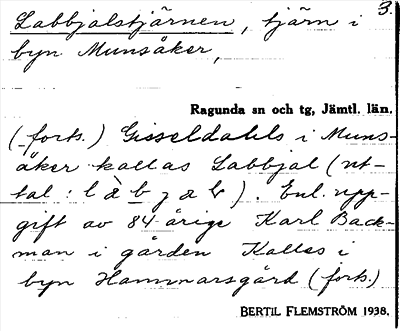 3.
Labbjalstjärnen, tjärn i
byn Munsåker,
Ragunda sn och tg, Jämtl. län.
(forts.) Gisseldahls i Muns-
åker kallas Labbjal (ut-
tal: ). Enl. upp-
gift av 84-årige Karl Back-
man i gården Kalles i
byn Hammarsgård (forts.)
BERTIL FLEMSTRÖM 1938.